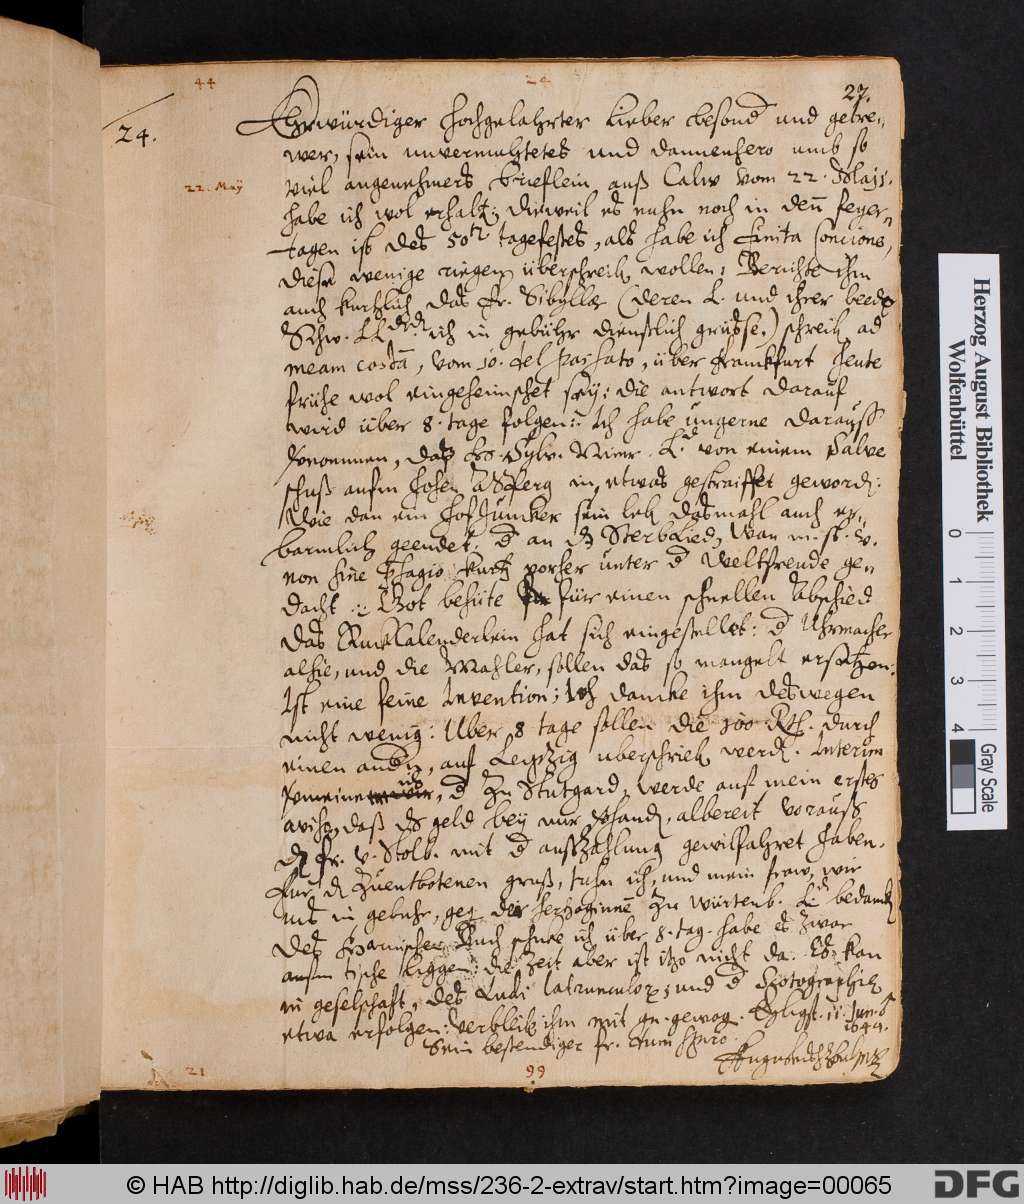 44
24
27.
24.
22. Maÿ
Ehrwürdiger Hochgelahrter Lieber besond und getre-
wer, sein unvermuhtetes und dannenhero umb so
viel angenehmers brieflein auß Calw vom 22. Maijs.
habe ich wol erhalt; dieweil es nuhn noch in den feyer-
tagen ist des 50tn tagefestes, als habe ich finita concione,
diese wenige überschreib wollen: Berichte ihm
auch kürtzlich das fr. Sibyllae (deren L. und ihrer beed
Schw. LLden ich in gebühr dienstlich grüsse.) schreib ad
meam costā, vom 10. del passato, über Franckfurt heute
frühe wol eingeheimschet seÿ: die antwort darauf
wird über 8. tage folgen: Ich habe ungerne darauß
vernommen, daß Hz. Sylv. Nimr. Ld von einem Salve
schuß aufm Hohen Asperg in etwas gestraiffet geword:
Wie dan ein HofJuncker sein leb dasmahl auch er-
barmlich geendet; d an Sterblied, wan m. st. v.
non sine praesagio kurtz vorher unter d weltfreude ge-
dacht. Got behüte für einen schnellen Abschied
Das Kalenderlein hat sich eingestellet: d Uhrmacher
alhie, und die Mahler, sollen das so mangelt ersetzen:
Ist eine feine Invention; Ich dancke ihm deswegen
nicht wenig: Uber 8 tage sollen die 300 Rth. durch
einen and, auf Leipzig uberschrieb werd. Interim
vermeine ich, d zu Stutgard, werde auf mein erstes
aviso, daß ds geld bey mir vorhand, albereit vorauß
fr. v. Stolb. mit d außzahlung gewilfahret haben.
Für d zuentbotenen gruß, tuhn ich, und mein fraw, wir
uns in gebuhr, geg der Hertzoginne zu Würtenb. Ld bedanck
Des Buch schicke ich über 8. tag. habe es zwar
aufm tische liggen: die Zeit aber ist itzo nicht da. Es kan
in geselschaft, des Ludi latrunculor; und d Scotographie
etwa erfolgen: Verbleib ihm mit gn. gewog. 11. Jun.
1644.
Sein bestendiger fr. dum spiro.
21
99
Herzog August Bibliothek
Wolfenbüttel
0 1 2 3 4
Gray Scale
© HAB http://diglib.hab.de/mss/236-2-extrav/start.htm?image=00065
DFG